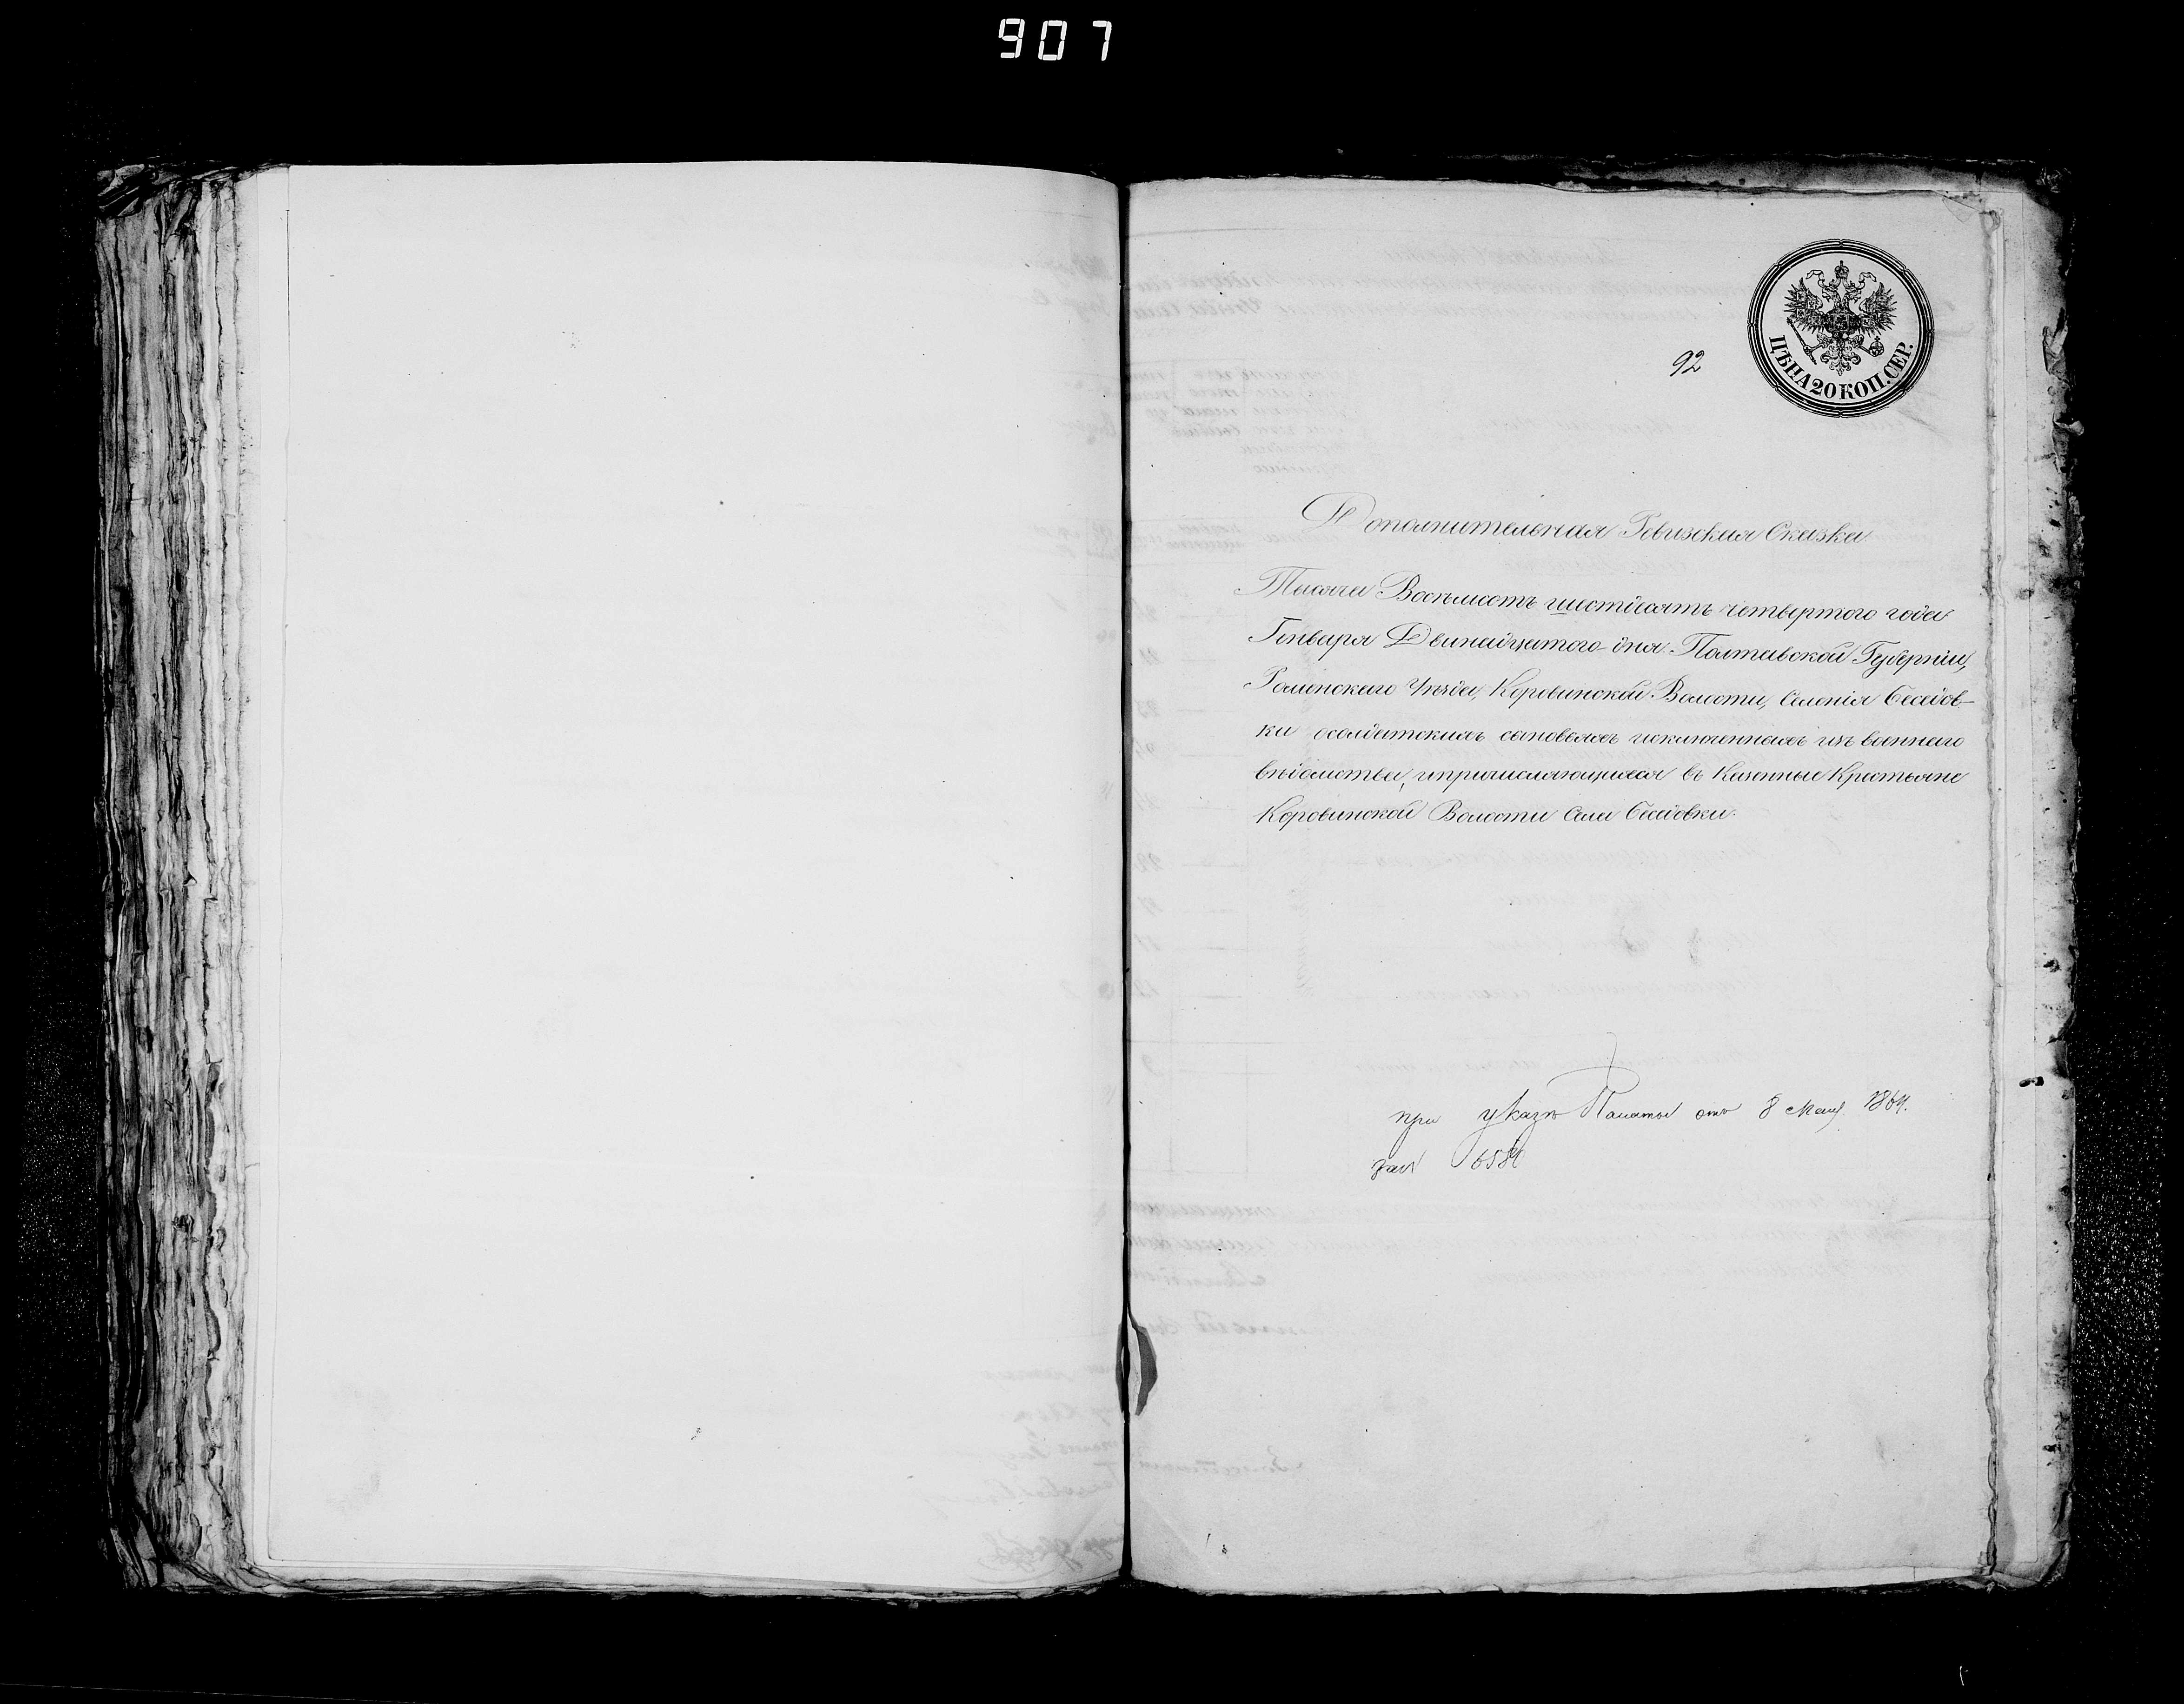 907
92
ЦѢНА 20 КОП. СЕР.
Дополнительная Ревизская Сказка
Тысяча Восемьсотъ шестидесятъ четвертого года
Генваря Двенадцатого дня. Полтавской Губерніи,
Роменскаго Уѣзда, Коровинской Волости, Селенія Беседов-
ки осолдатскихъ сыновьяхъ исключенныхъ изъ военнаго
вѣдомства, ипричисляющихся въ Казенные Крестьяне
Коровинской Волости Села Беседовки.
при указѣ Палаты отъ 8 Мая 1864.
за №